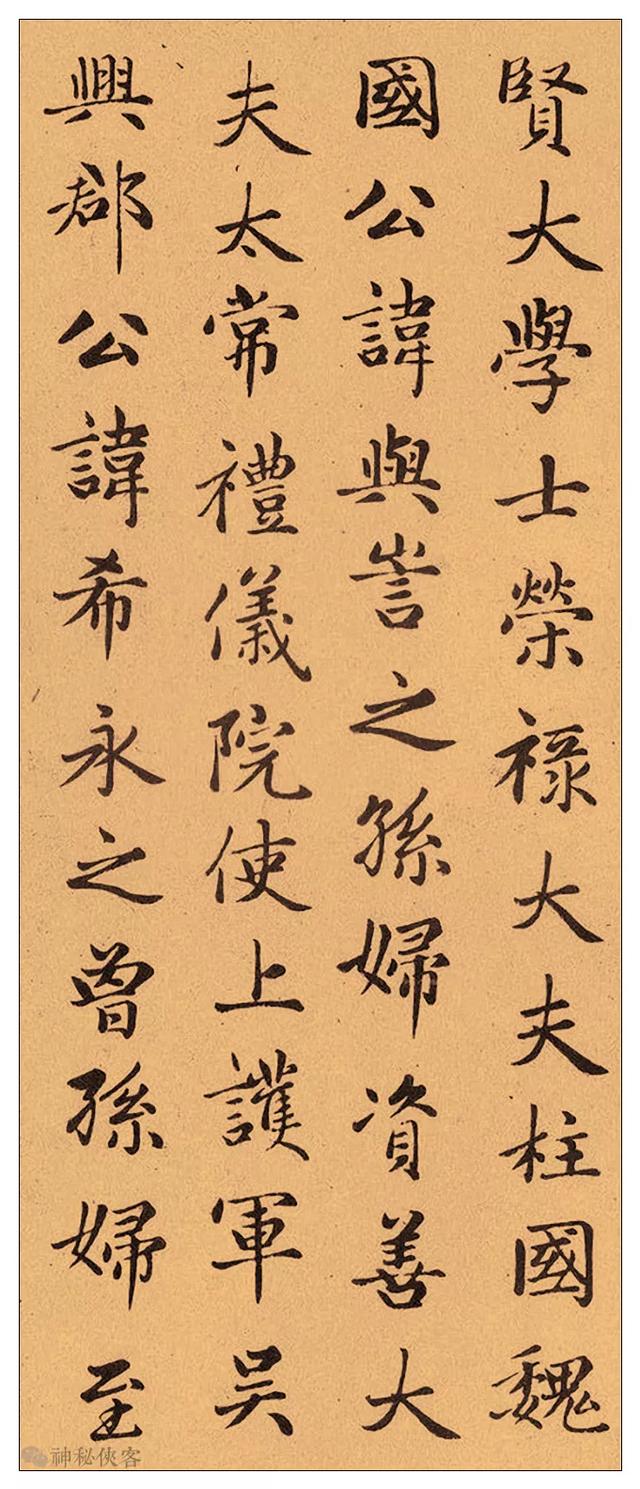 賢大學士榮祿大夫柱國魏
國公諱與訔之孫婦資善大
夫太常禮儀院使上護軍吳
興郡公諱希永之曾孫婦至
神秘俠客